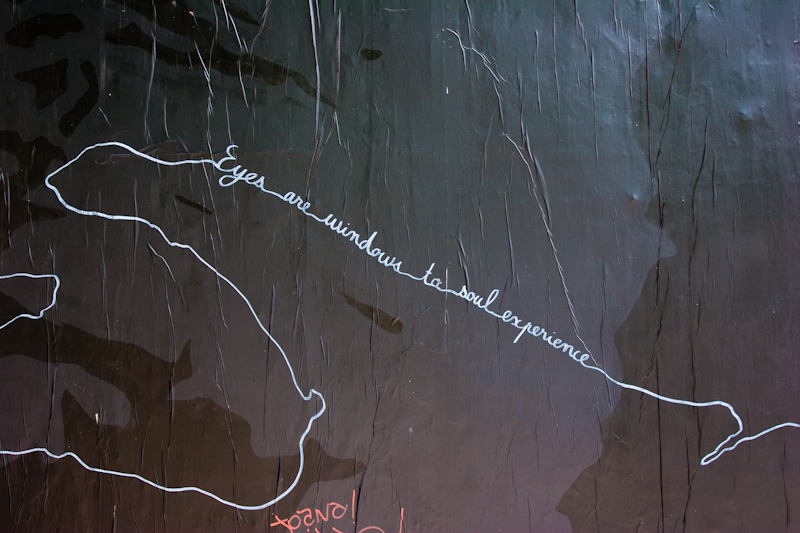 Eyes are windows to soul experience